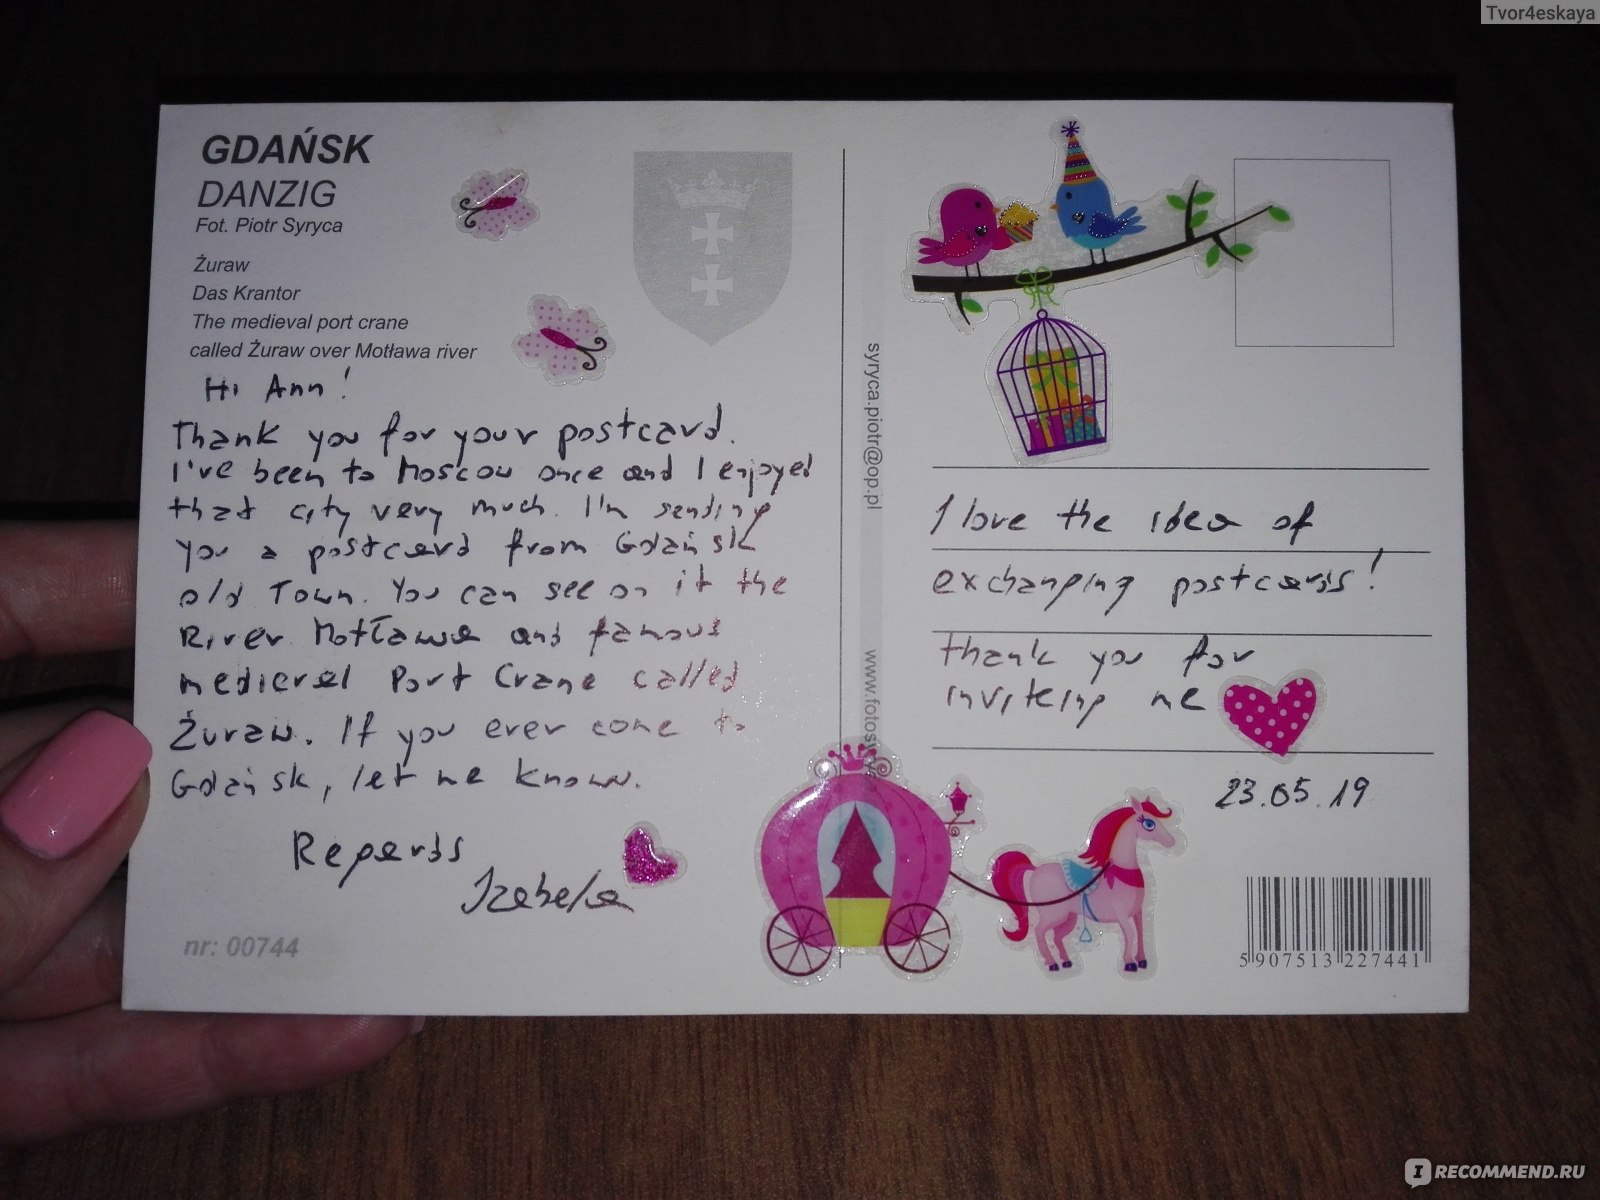 Tvor4eskaya
GDAŃSK
DANZIG
Fot. Piotr Syryca
Żuraw
Das Krantor
The medieval port crane
called Żuraw over Motława river
Hi Ann!
Thank you for your postcard.
I've been to Moscow once and I enjoyed
that city very much. I'm sending
you a postcard from Gdańsk
old Town. You can see on it the
River Motława and famous
medieval Port Crane called
Żuraw. If you ever come to
Gdańsk, let me know.
Regards
Izabela
nr: 00744
syryca.piotr@op.pl
www.fotos
I love the idea of
exchanging postcards!
thank you for
inviteing me
23.05.19
5907513 227441
IRECOMMEND.RU